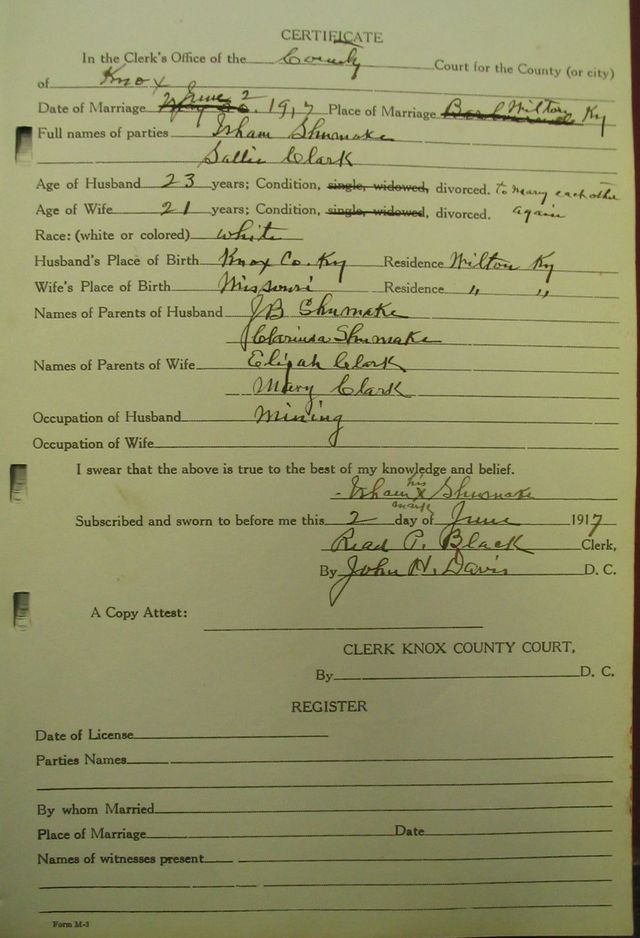 CERTIFICATE
In the Clerk's Office of the County Court for the County (or city)
of Knox
Date of Marriage June 2 1917 Place of Marriage Wilton Ky
Full names of parties Isham Shumake
Sallie Clark
Age of Husband 23 years; Condition, single, widowed, divorced. to marry each other
Age of Wife 21 years; Condition, single, widowed, divorced. again
Race: (white or colored) white
Husband's Place of Birth Knox Co. Ky Residence Wilton Ky
Wife's Place of Birth Missouri Residence " "
Names of Parents of Husband JB Shumake
Clarinda Shumake
Names of Parents of Wife Elijah Clark
Mary Clark
Occupation of Husband Mining
Occupation of Wife
I swear that the above is true to the best of my knowledge and belief.
Isham his X mark Shumake
Subscribed and sworn to before me this 2 day of June 1917
Read P. Black Clerk,
By John H. Davis D. C.
A Copy Attest:
CLERK KNOX COUNTY COURT,
By D. C.
REGISTER
Date of License
Parties Names
By whom Married
Place of Marriage Date
Names of witnesses present
Form M-3